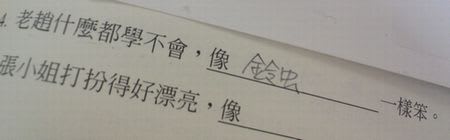 4. 老趙什麼都學不會，像 鈴虫 一樣笨。
張小姐打扮得好漂亮，像